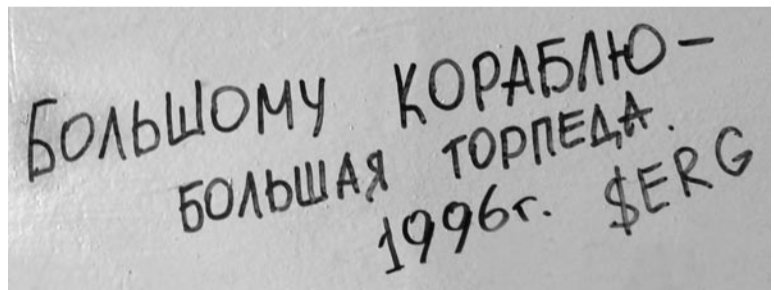 БОЛЬШОМУ КОРАБЛЮ –
БОЛЬШАЯ ТОРПЕДА.
1996г. $ERG